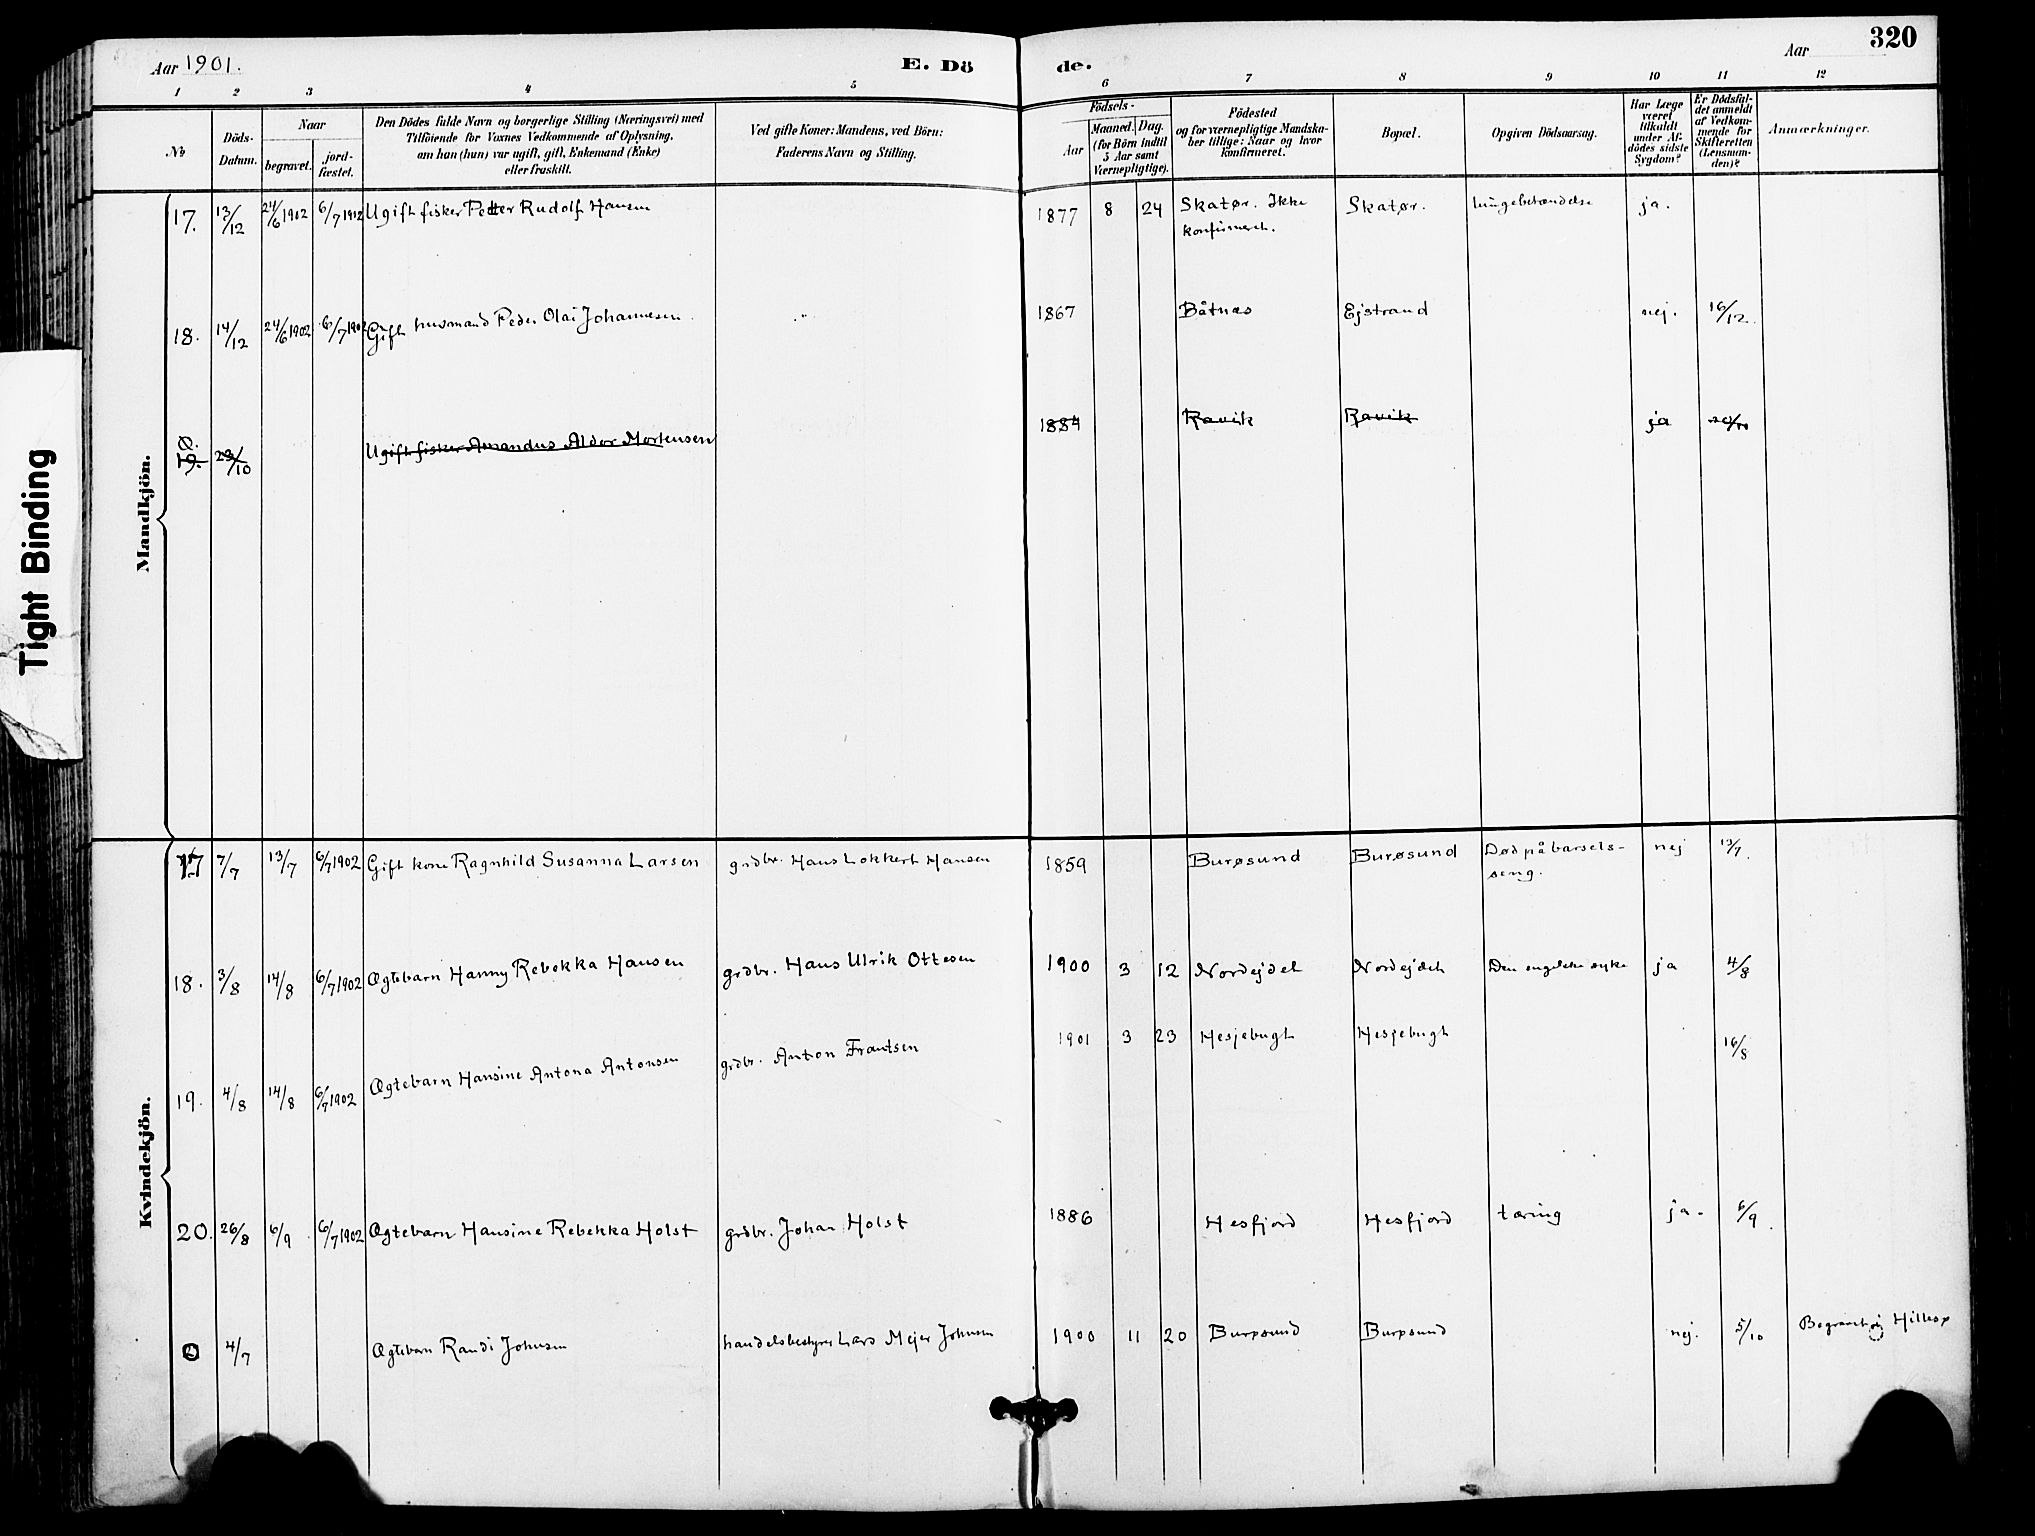 320
Aar 1901.
E. Dö
de.
Aar
1 2 3 4 5 6 7 8 9 10 11 12
No
Döds-
Datum.
Naar
begravet.
jord-
fæstet.
Den Dödes fulde Navn og borgerlige Stilling (Næringsvei) med
Tilföiende for Voxnes Vedkommende af Oplysning,
om han (hun) var ugift, gift, Enkemand (Enke)
eller fraskilt.
Ved gifte Koner: Mandens, ved Börn:
Faderens Navn og Stilling.
Födsels-
Aar
Maaned. Dag.
(for Börn indtil
5 Aar samt
Værnepligtige).
Födested
og for værnepligtige Mandska-
ber tillige: Naar og hvor
konfirmeret.
Bopæl.
Opgiven Dödsaarsag.
Har Læge
været
tilkaldt
under Af-
dödes sidste
Sygdom?
Er Dödsfal-
det anmeldt
af Vedkom-
mende for
Skifteretten
(Lensman-
den)?
Anmærkninger.
Tight Binding
Mandkjön.
17. 13/12 24/6 1902 6/7 1902 Ugift fisker Petter Rudolf Hansen 1877 8 24 Skatør. Ikke Skatør. lungebetændelse ja.
konfirmeret.
18. 14/12 24/6 1902 6/7 1902 Gift husmand Peder Olai Johannesen 1867 Båtnæs Ejstrand nej. 16/12
19. 23/10 Ugift fisker Amandus Aldor Mortensen 1884 Ravik Ravik ja
Kvindekjön.
17 7/7 13/7 6/7 1902 Gift kone Ragnhild Susanna Larsen grdbr. Hans Lokkert Hansen 1859 Burøsund Burøsund Død på barsels- nej 13/7.
seng.
18. 3/8 14/8 6/7 1902 Ægtebarn Hanny Rebekka Hansen grdbr. Hans Ulrik Ottesen 1900 3 12 Nordejdet Nordejdet Den engelske syke ja 4/8
19. 4/8 14/8 6/7 1902 Ægtebarn Hansine Antona Antonsen grdbr. Anton Frantsen 1901 3 23 Hesjebugt Hesjebugt 16/8
20. 26/8 6/9 6/7 1902 Ægtebarn Hansine Rebekka Holst grdbr. Johan Holst 1886 Hesfjord Hesfjord tæring ja. 6/9.
4/7 Ægtebarn Randi Johnsen handelsbestyrer Lars Mejer Johnsen 1900 11 20 Burøsund Burøsund nej. 5/10 Begravet Hillesø